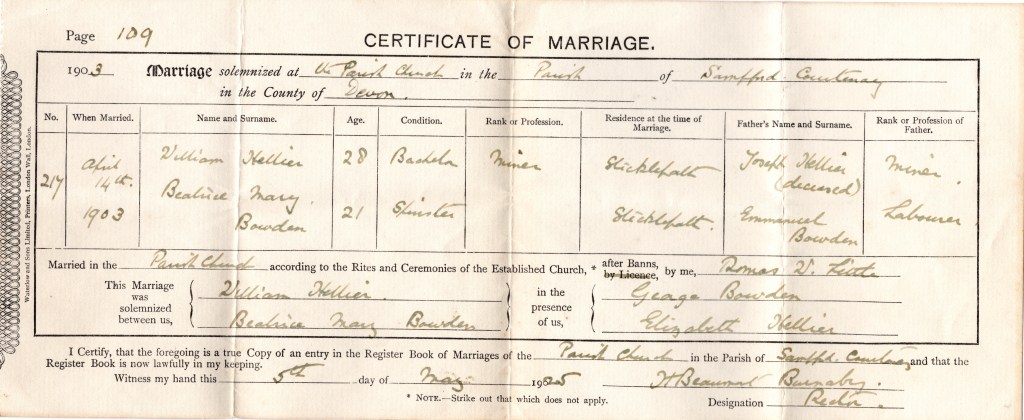 Page 109
CERTIFICATE OF MARRIAGE.
1903 Marriage solemnized at the Parish Church in the Parish of Sampford Courtenay
in the County of Devon.
No. When Married. Name and Surname. Age. Condition. Rank or Profession. Residence at the time of Marriage. Father's Name and Surname. Rank or Profession of Father.
217 April 14th. 1903
William Hellier 28 Bachelor Miner Sticklepath Joseph Hellier (deceased) Miner.
Beatrice Mary Bowden 21 Spinster Sticklepath. Emmanuel Bowden Labourer
Married in the Parish Church according to the Rites and Ceremonies of the Established Church, * after Banns, by Licence, by me, Thomas W. Little
This Marriage was solemnized between us, William Hellier. Beatrice Mary Bowden in the presence of us, George Bowden Elizabeth Hellier
I Certify, that the foregoing is a true Copy of an entry in the Register Book of Marriages of the Parish Church in the Parish of Sampfd. Courtenay and that the
Register Book is now lawfully in my keeping.
Witness my hand this 5th day of May 1925 H Beaumont Burnaby.
* NOTE.—Strike out that which does not apply. Designation Rector.
Waterlow and Sons Limited, Printers, London Wall, London.